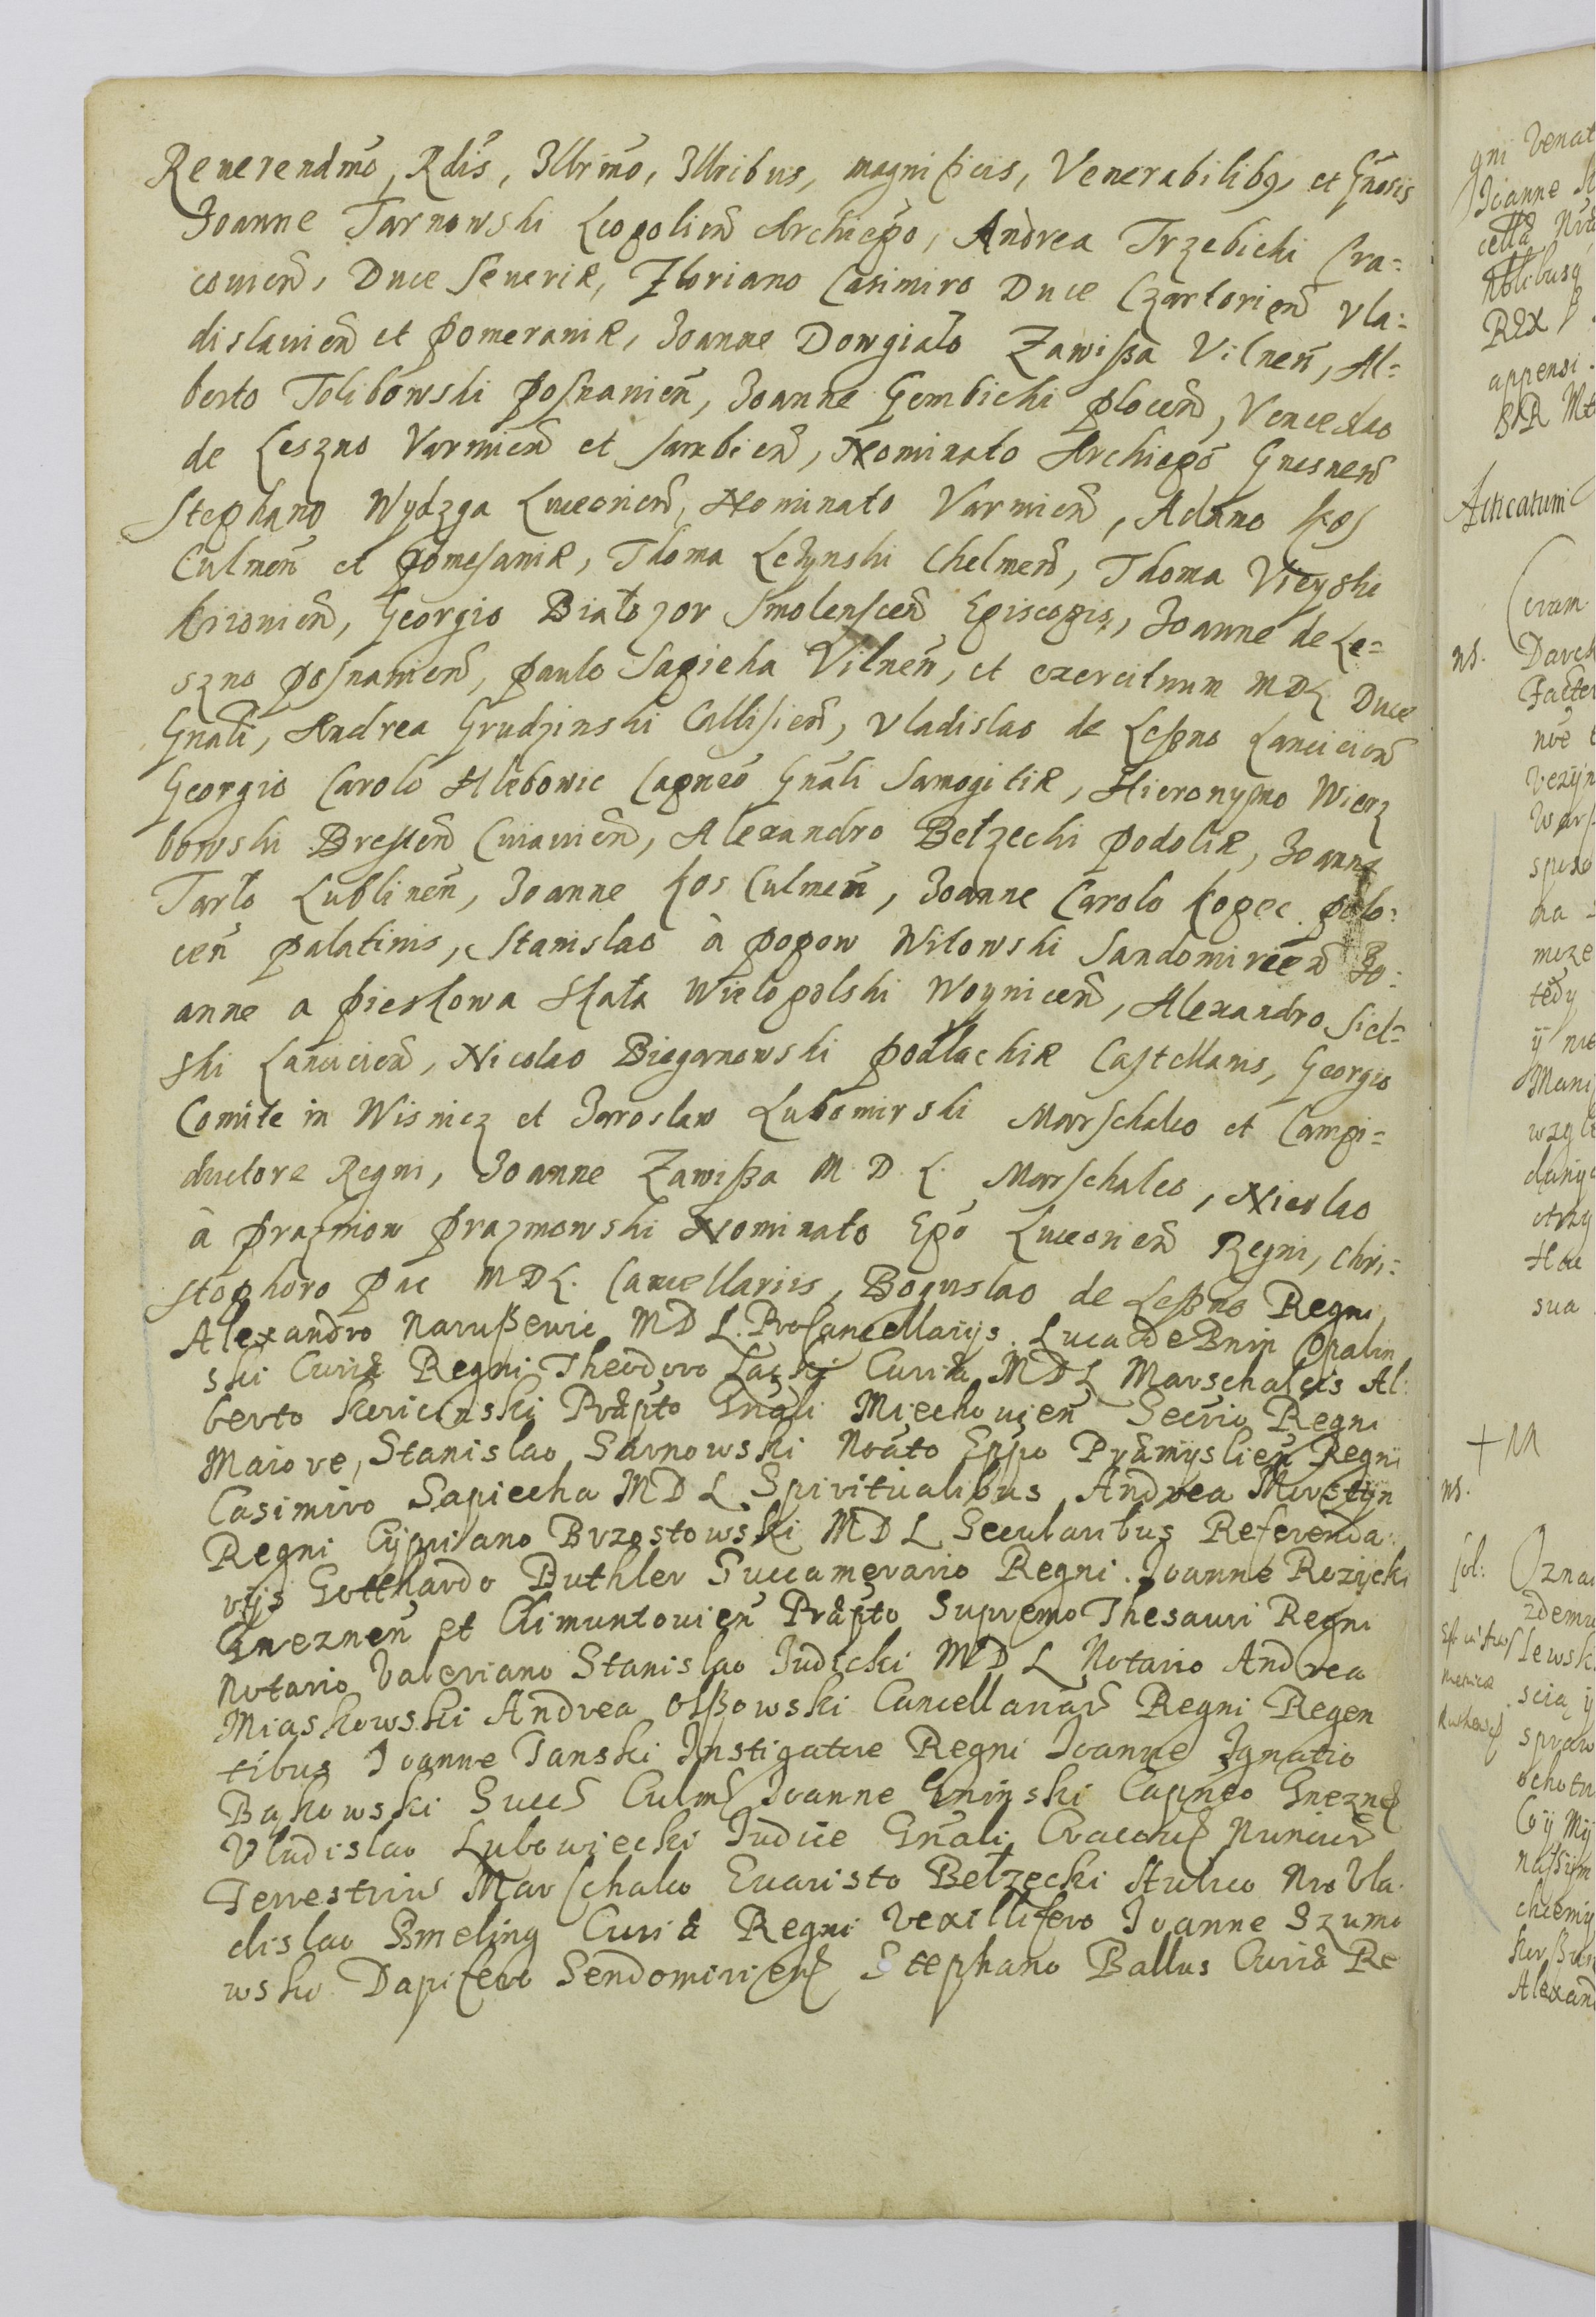 Reuerendmo, Rdis, Illrimo, Illribus, magnificis, Venerabilibq, et Gnosis
Joanne Tarnowski Leopolien Archiepo, Andrea Trzebicki Cra=
couien, Duce Seueriæ, Floriano Casimiro Duce Czartorien Vla=
dislauien et Pomeraniæ, Joanne Dowgiało Zawißa Vilnen, Al=
berto Tolibowski Posnanien, Joanne Gembicki Plocen, Venceslao
de Leszno Varmien et Sambien, Nominato Archiepo Gnesnen
Stephano Wydzga Luceorien, Nominato Varmien, Adamo Kos
Culmen et Pomesaniæ, Thoma Leżynski Chelmen, Thoma Vieyski
Kiiouien, Georgio Białozor Smolenscen Episcopis, Joanne de Le=
szno Posnanien, Paulo Sapieha Vilnen, et exercituum MDL Duce
Gnali, Andrea Grudzinski Callisien, Vladislao de Leßno Lancicien
Georgio Carolo Hlebowic Capneo Gnali Samogitiæ, Hieronymo Wierz
bowski Bresten Cuiauien, Alexandro Bełzecki Podoliæ, Joanne
Tarło Lublinen, Joanne Kos Culmen, Joanne Carolo Kopec Polo=
cen Palatinis, Stanislao à Popow Witowski Sandomirien Jo=
anne a Pieskowa Skała Wielopolski Woynicen, Alexandro Siel=
ski Lancicien, Nicolao Bieganowski Podlachiæ Castellanis, Georgio
Comite in Wisnicz et Jaroslaw Lubomirski Marschalco et Campi=
ductore Regni, Joanne Zawißa M D L. Marschalco, Nicolao
à Prazmow Prazmowski Nominato Epo Luceorien Regni, Chri=
stophoro Pac MDL. Cancellariis, Boguslao de Leßno Regni
Alexandro Narußewic MD L. ProCancellarijs. Luca de Bnin Opalin
ski Curiæ Regni Theodoro Lacki Curiæ MDL Marschalcis Al:
berto Koricinski Præpto Gnali Miechouien Secrio Regni
Maiore, Stanislao Sarnowski Noato Eppo Præmyslien Regni
Casimiro Sapiecha MD L Spiritualibus Andrea Morstyn
Regni Cypriano Brzostowski MDL Secularibus Referenda:
rijs Gotthardo Buthler Succamerario Regni. Joanne Rozycki
Gneznen et Climuntouien Præpto Supremo Thesauri Regni
Notario Valeriano Stanislao Judicki MD L Notario Andrea
Miaskowski Andrea Olßowski Cancellariar Regni Regen
tibus Joanne Tanski Instigatore Regni Joanne Ignatio
Bąkowski Succ Culm Joanne Gninski Capneo Gnezn
Vladislao Lubowiecki Judice Gnali Cracou Nunciur
Terrestriu Marschalco Euaristo Bełzecki Aulico Nro Vla
dislao Smeling Curiæ Regni Vexillifero Joanne Szumo
wski Dapifero Sendomirien Stephano Ballus Curiæ Re
gni Venat
Joanne
REX
appensi.
Acticatum
ns.
Oznai
Alexand